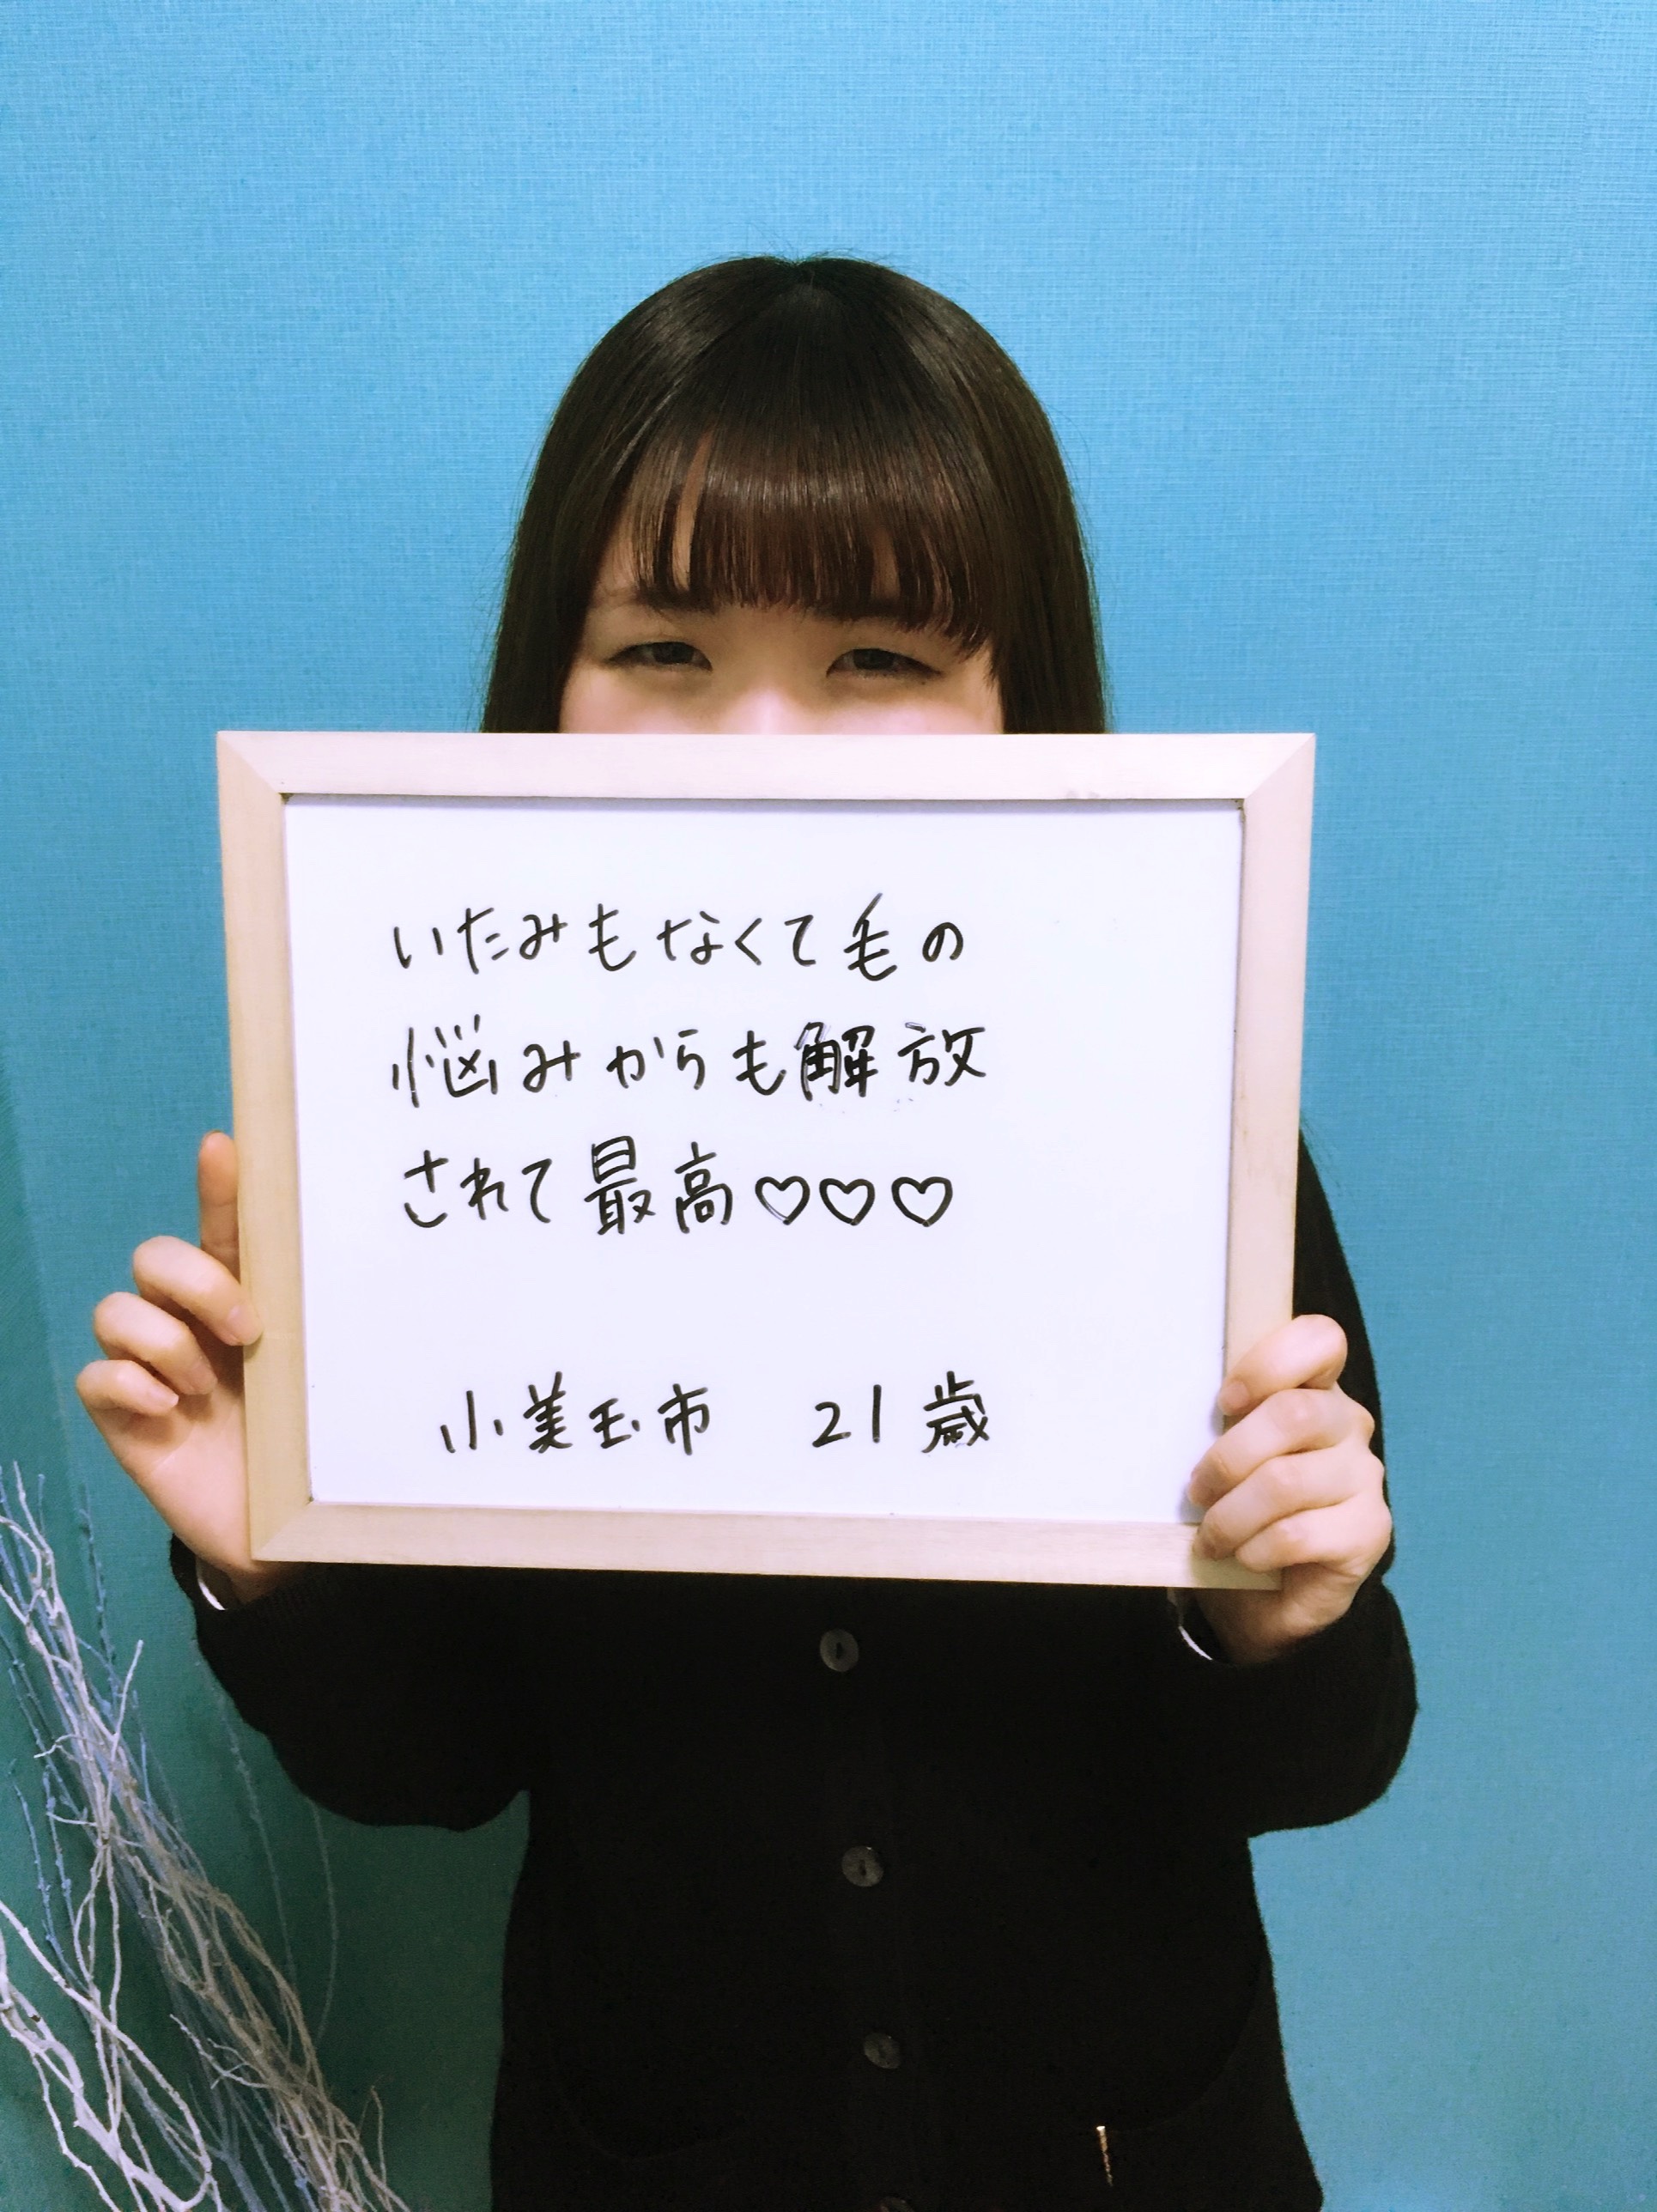 いたみもなくて毛の
悩みからも解放
されて最高♡♡♡
小美玉市 21歳